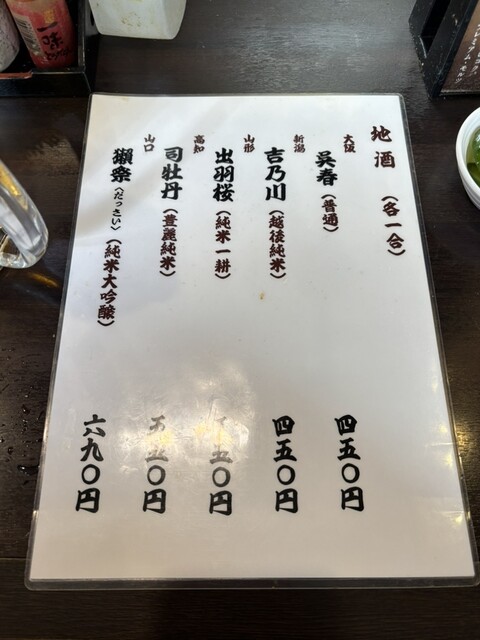 地酒（各一合）
大阪
呉春（普通）
四五〇円
新潟
吉乃川（越後純米）
四五〇円
山形
出羽桜（純米一耕）
五〇円
高知
司牡丹（豊麗純米）
五〇円
山口
獺祭〈だっさい〉（純米大吟醸）
六九〇円
一味